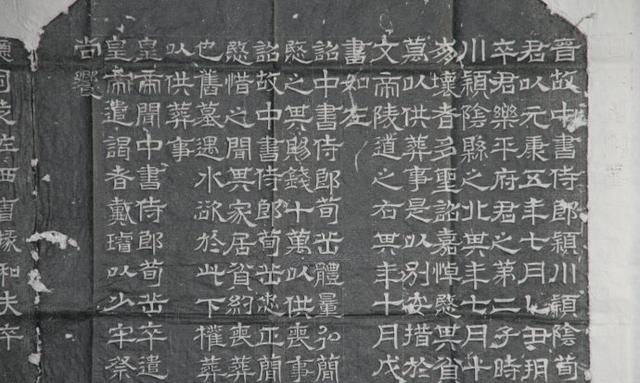 晉故中書侍郎潁川潁陰荀
君以元康五年七月乙丑朔
卒君樂平府君之第二子時
川潁陰縣之北其年七月十
壞者多聖詔嘉悼愍其貧
墓以供葬事是以別安措於
文帝陵道之右其年十月戊
書如左
詔中書侍郎荀岳體量弘簡
愍之其賜錢十萬以供喪事
詔故中書侍郎荀岳忠正簡
愍惜之聞其家居貧約喪葬
也舊墓遇水欲於此下權葬
以供葬事
皇帝聞中書侍郎荀岳卒遣
皇帝遣謁者戴璿以少牢祭
尚饗
司徒左西曹掾和夫卒